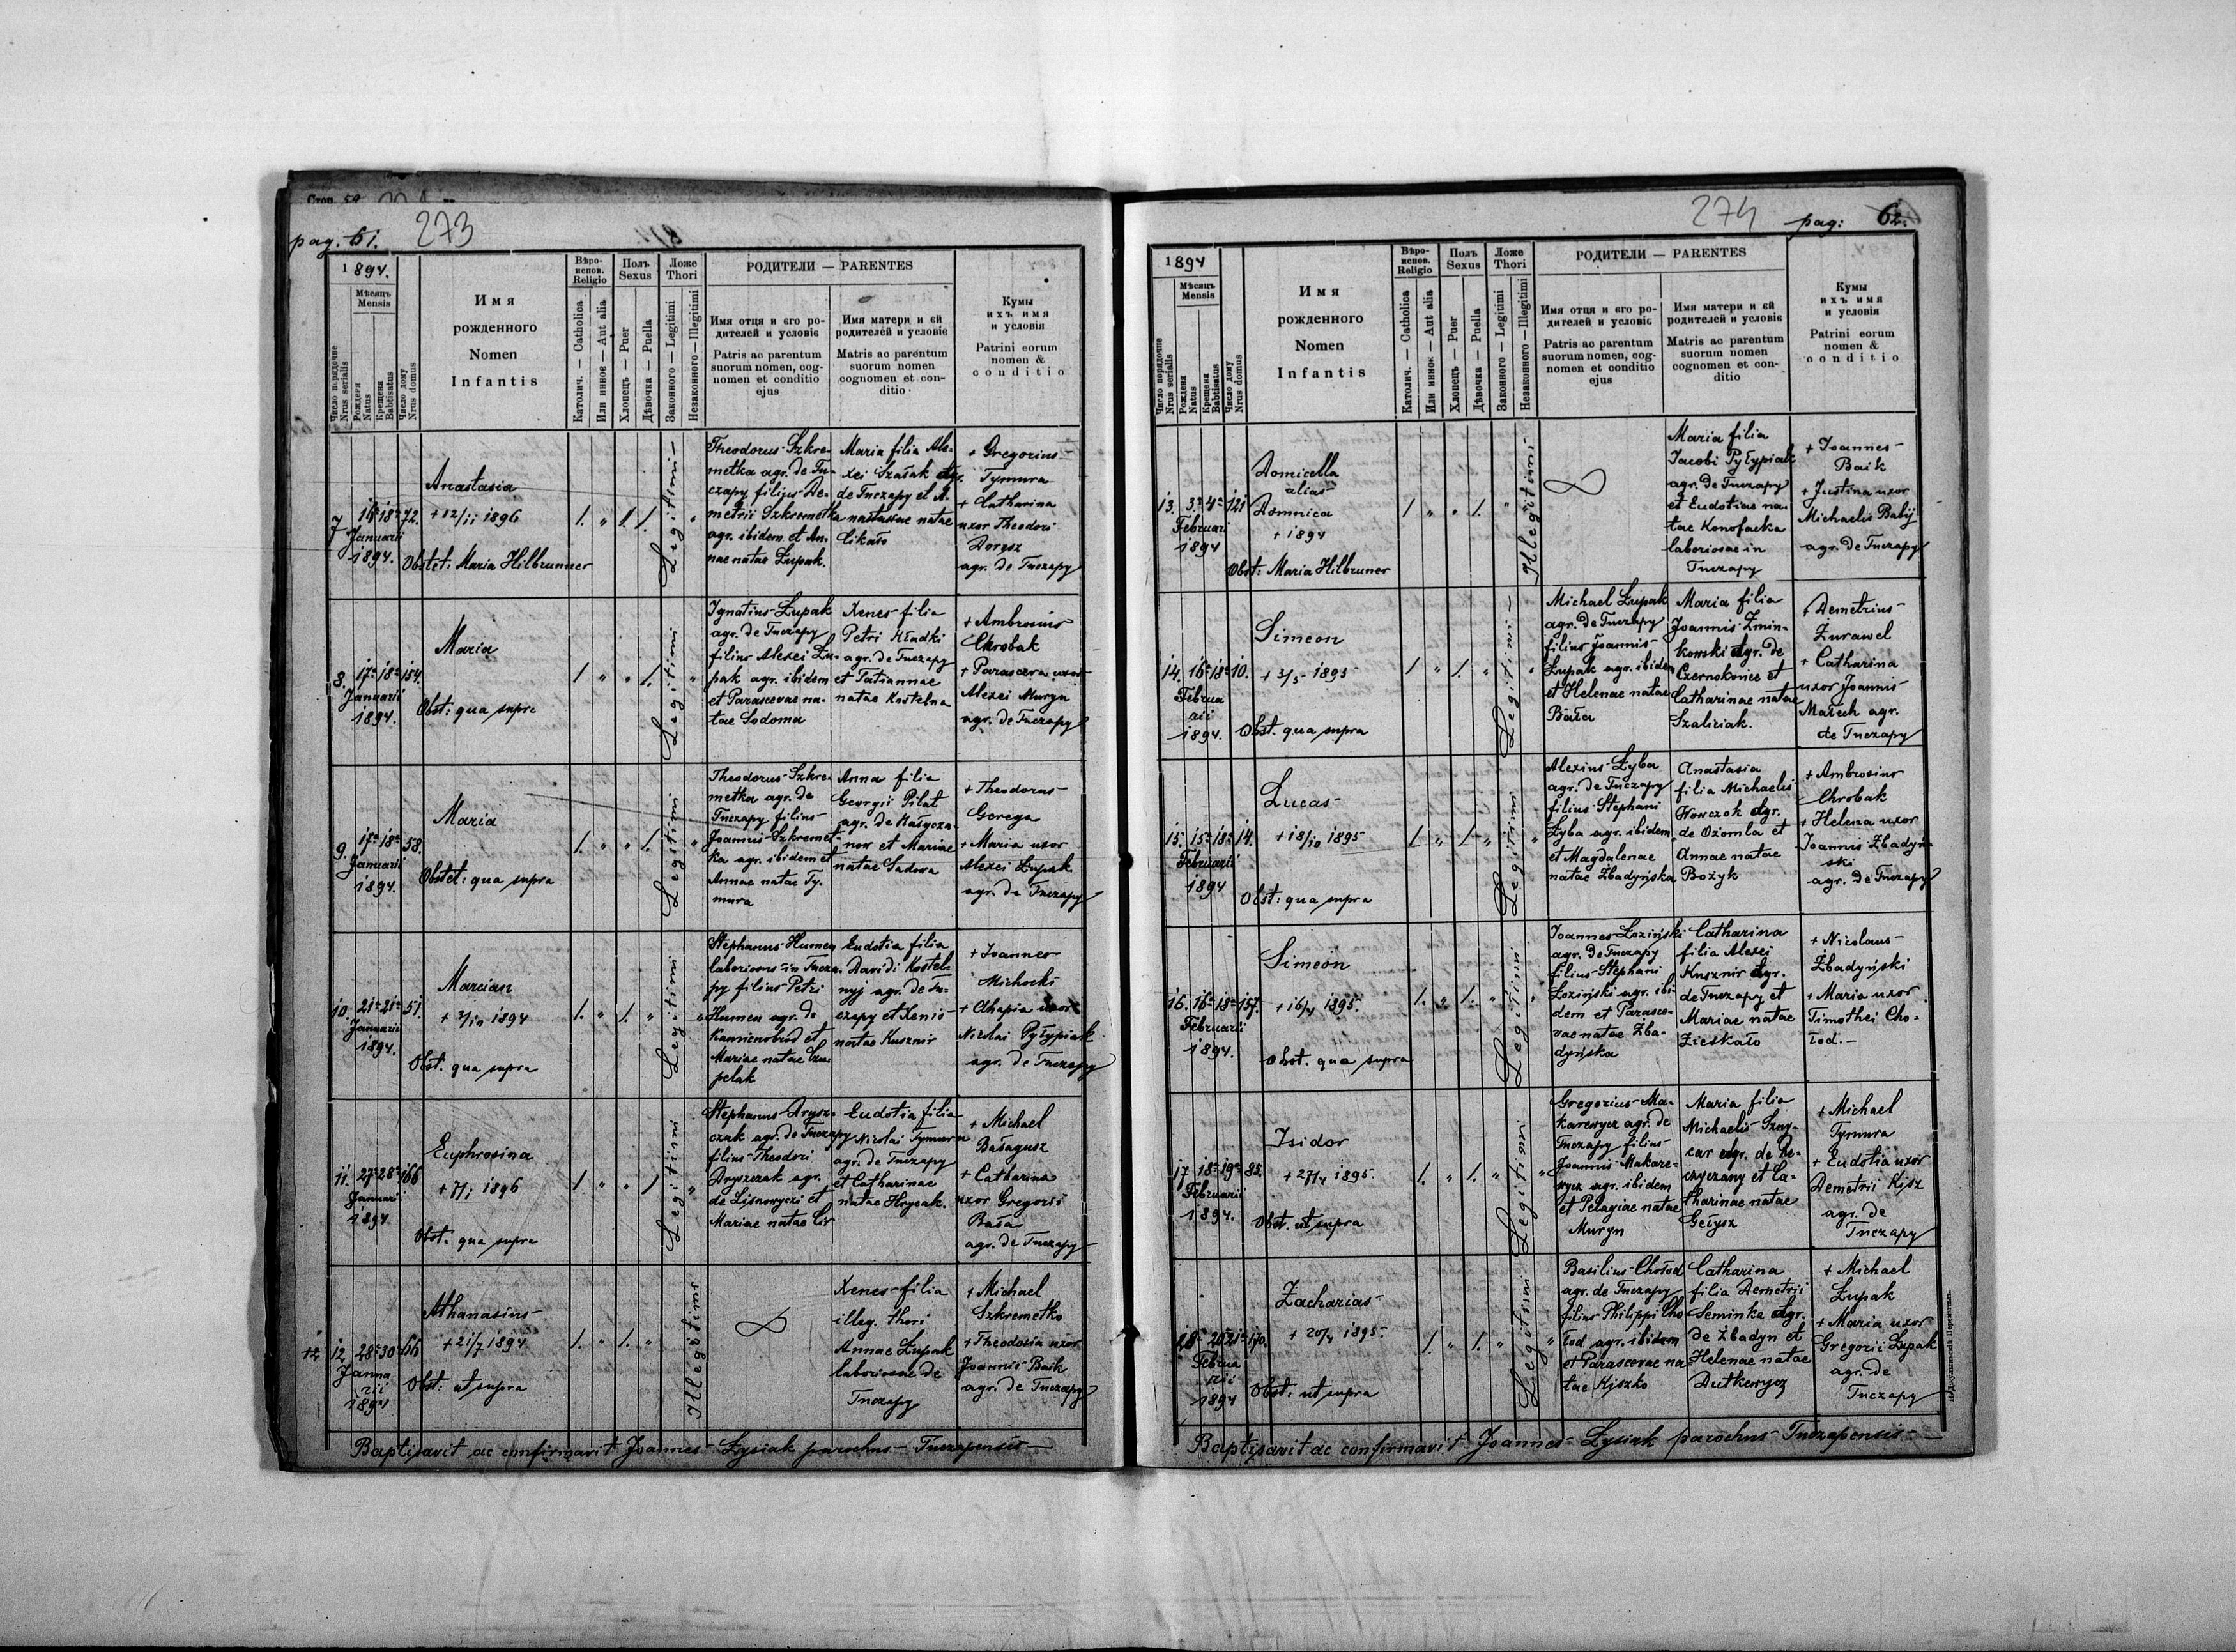 pag. 61.
273
1894.
Мѣсяцъ
Mensis
Число порядочне
Nrus serialis
Рожденя
Natus
Крещеня
Babtisatus
Число дому
Nrus domus
Имя
рожденного
Nomen
Infantis
Вѣро-
испов.
Religio
Католич. — Catholica
Или инное — Aut alia
Полъ
Sexus
Хлопець — Puer
Дѣвочка — Puella
Ложе
Thori
Законного — Legitimi
Незаконного — Illegitimi
РОДИТЕЛИ — PARENTES
Имя отця и єго ро-
дителей и условіє
Patris ac parentum
suorum nomen, cog-
nomen et conditio
ejus
Имя матери и єй
родителей и условіє
Matris ac parentum
suorum nomen
cognomen et con-
ditio
Кумы
ихъ имя
и условія
Patrini eorum
nomen &
conditio
7
16 18 72.
Januarii
1894.
Anastasia
+ 12/11 1896
Obstet: Maria Hilbrunner
Legitimi
Theodorus Szkre-
metka agr. de Tu-
czapy filius De-
metrii Szkremetka
agr. ibidem et An-
nae natae Łupak.
Maria filia Ale-
xei Szałak agr.
de Tuczapy et A-
nastasiae natae
Cikało
+ Gregorius
Tymura
+ Catharina
uxor Theodori
Dorosz
agr. de Tuczapy
8.
17 18 154.
Januarii
1894.
Maria
Obst: qua supra
Legitimi
Ignatius Łupak
agr. de Tuczapy
filius Alexei Łu-
pak agr. ibidem
et Parascevae na-
tae Sodoma
Xenes filia
Petri Hładki
agr. de Tuczapy
et Tatiannae
natae Kostelna
+ Ambrosius
Chrobak
+ Parasceva uxor
Alexei Muryn
agr. de Tuczapy
9.
17 18 58.
Januarii
1894.
Maria
Obstet: qua supra
Legitimi
Theodorus Szkre-
metka agr. de
Tuczapy filius
Joannis Szkremet-
ka agr. ibidem et
Annae natae Ty-
mura
Anna filia
Georgii Pilat
agr. de Hałycza-
now et Mariae
natae Sadowa
+ Theodorus
Gorega
+ Maria uxor
Alexei Łupak
agr. de Tuczapy
10.
21 21 51.
Januarii
1894.
Marcian
+ 3/10 1894
Obst. qua supra
Legitimi
Stephanus Humen
laboriosus in Tucza-
py filius Petri
Humen agr. de
Kamienobród et
Mariae natae Szu-
pelak
Eudotia filia
Davidi Kostel-
nyj agr. de Tu-
czapy et Xenis
natae Kusznir
+ Joannes
Michocki
+ Ahapia uxor
Nicolai Pyłypiak
agr. de Tuczapy
11.
27 28 166
Januarii
1894
Euphrosina
+ 7/1 1896
Obst: qua supra
Legitimi
Stephanus Drysz-
czak agr. de Tuczapy
filius Theodori
Dryszczak agr.
de Lisnowyczi et
Mariae natae Cir
Eudotia filia
Nicolai Tymura
agr. de Tuczapy
et Catharinae
natae Hrycak.
+ Michael
Bałagusz
+ Catharina
uxor Gregorii
Bała
agr. de Tuczapy
12.
28 30 166
Janua
rii
1894
Athanasius
+ 21/7 1894
Obst: ut supra
Illegitimi
Xenes filia
illeg. thori
Annae Łupak
laboriosae de
Tuczapy
+ Michael
Szkremetko
+ Theodosia uxor
Joannis Baik
agr. de Tuczapy
Baptisavit ac confirmavit Joannes Łysiak parochus Tuczapensis
274
pag: 62.
1894
Мѣсяцъ
Mensis
Число порядочне
Nrus serialis
Рожденя
Natus
Крещеня
Babtisatus
Число дому
Nrus domus
Имя
рожденного
Nomen
Infantis
Вѣро-
испов.
Religio
Католич. — Catholica
Или инное — Aut alia
Полъ
Sexus
Хлопець — Puer
Дѣвочка — Puella
Ложе
Thori
Законного — Legitimi
Незаконного — Illegitimi
РОДИТЕЛИ — PARENTES
Имя отця и єго ро-
дителей и условіє
Patris ac parentum
suorum nomen, cog-
nomen et conditio
ejus
Имя матери и єй
родителей и условіє
Matris ac parentum
suorum nomen
cognomen et con-
ditio
Кумы
ихъ имя
и условія
Patrini eorum
nomen &
conditio
13.
3 4 121
Februari
1894
Domicella
alias
Domnica
+ 1894
Obst: Maria Hilbruner
Illegitimi
Maria filia
Jacobi Pyłypiak
agr. de Tuczapy
et Eudotias na-
tae Konofacka
laboriosae in
Tuczapy
+ Joannes
Baik
+ Justina uxor
Michaelis Babij
agr. de Tuczapy
14.
16 18 10.
Februa
rii
1894.
Simeon
+ 3/5 1895
Obst. qua supra
Legitimi
Michael Łupak
agr. de Tuczapy
filius Joannis
Łupak agr. ibidem
et Helenae natae
Bała
Maria filia
Joannis Zmin-
kowski agr. de
Czernokońce et
Catharinae natae
Szaliciak.
+ Demetrius
Żurawel
+ Catharina
uxor Joannis
Małech agr.
de Tuczapy
15.
15 18 14.
Februarii
1894
Lucas
+ 18/10 1895
Obst: qua supra
Legitimi
Alexius Zyba
agr. de Tuczapy
filius Stephani
Zyba agr. ibidem
et Magdalenae
natae Żbadyńska
Anastasia
filia Michaelis
Howczok agr.
de Ożomla et
Annae natae
Bożyk
+ Ambrosius
Chrobak
+ Helena uxor
Joannis Żbadyń-
ski
agr. de Tuczapy
16.
16 18 157.
Februarii
1894.
Simeon
+ 16/4 1895.
Obst. qua supra
Legitimi
Joannes Łoziński
agr. de Tuczapy
filius Stephani
Łoziński agr. ibi-
dem et Parasce-
vae natae Żba-
dyńska
Catharina
filia Alexei
Kusznir agr.
de Tuczapy et
Mariae natae
Zieskało
+ Nicolaus
Żbadyński
+ Maria uxor
Timothei Cho-
łod.
17
18 19 85.
Februarii
1894.
Isidor
+ 27/4 1895.
Obst. ut supra
Legitimi
Gregorius Ma-
karewycz agr. de
Tuczapy filius
Joannis Makare-
wycz agr. ibidem
et Pelagiae natae
Muryn
Maria filia
Michaelis Szny-
car agr. de Re-
czyczany et Ca-
tharinae natae
Gełysz
+ Michael
Tymura
+ Eudotia uxor
Demetrii Kysz
agr. de
Tuczapy
18
20 21 170.
Februa
rii
1894
Zacharias
+ 20/4 1895.
Obst: ut supra
Legitimi
Basilius Chołod
agr. de Tuczapy
filius Philippi Cho-
łod agr. ibidem
et Parascevae na-
tae Kyszko
Catharina
filia Demetrii
Seminka agr.
de Żbadyn et
Helenae natae
Dutkewycz
+ Michael
Łupak
+ Maria uxor
Gregorii Łupak
agr. de
Tuczapy
Baptisavit ac confirmavit Joannes Łysiak parochus Tuczapensis